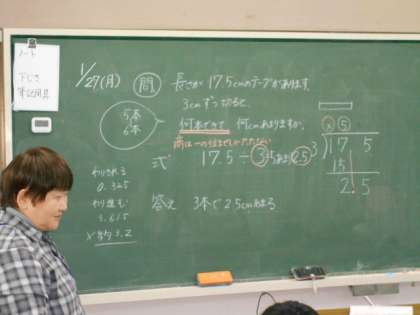 ノート
下じき
筆記用具
1/27(月)
問
長さが17.5cmのテープがあります。
3cmずつ切ると、
何本できて何cmあまりますか。
商は一の位までしかたたない
5本
6本
式 17.5÷3=5あまり2.5
答え 3本で2.5cmあまる
わりきれる
0.325
わり進む
3.615
3.2
5
3)17 5
15
2.5